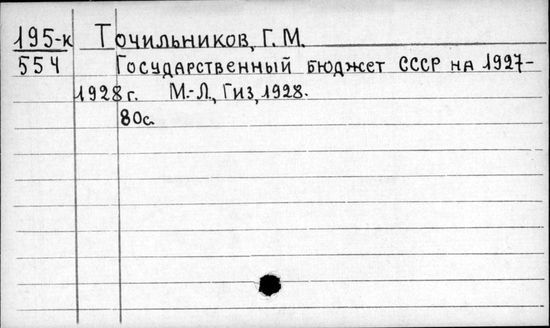 195-к Точильников, Г. М.
554 Государственный бюджет СССР на 1927-
1928 г. М.-Л., Гиз, 1928.
80с.